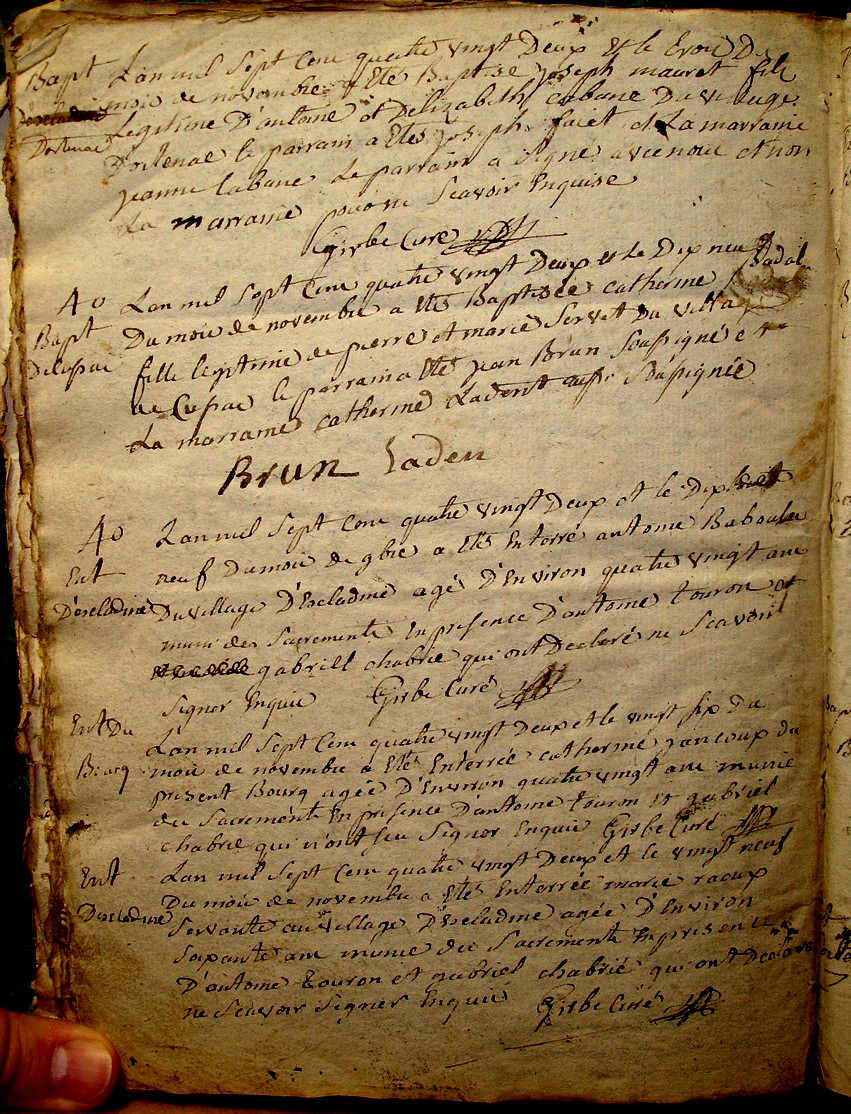 Bapt
Dortenac
Lan mil Sept Cens quatre vingt Deux Et le trois Du
mois de novembre a Eté Baptisé joseph mauret fils
Legitime D'antoine et D'elizabeth Cabane Du village
D'ortenac le parrain a Eté joseph facet et La marraine
jeanne Cabane Le parrain a signé avec nous et non
La marraine pour ne Scavoir Enquise
Girbe Curé
40
Bapt
De Cusac
Lan mil Sept Cens quatre vingt Deux et le Dix neuf
Du mois de novembre a Eté Baptisée Catherine Vadal
fille legitime de pierre et marie Servet Du village
de Cusac le parrain a Eté jean Brun Soussigné et
La marraine catherine Ladent aussi Soussignée
Brun Laden
40
Ent
D'escladine
Lan mil Sept Cens quatre vingt Deux et le Dix
neuf Du mois de 9bre a Eté Enterré antoine Baboulie
Du village D'Escladine agé D'Environ quatre vingt ans
muni des Sacrements En presence D'antoine touron et
gabriell chabrie qui ont Declaré ne Scavoir
Signer Enquis Girbe Curé
Ent Du
Bourg
Lan mil Sept Cens quatre vingt Deux et le vingt six Du
mois de novembre a Eté Enterrée catherine jancoup du
present Bourg agée D'Environ quatre vingt ans munie
des Sacrements En presence D'antoine touron et gabriel
chabrie qui n'ont seu Signer Enquis Girbe Curé
Ent
Descladine
Lan mil Sept Cens quatre vingt Deux et le vingt neuf
Du mois de novembre a Eté Enterrée marie raoux
Servante au village D'Escladine agée D'Environ
soixante ans munie des Sacrements En presence
D'antoine touron et gabriel chabrié qui ont Declaré
ne Scavoir Signer Enquis Girbe Curé